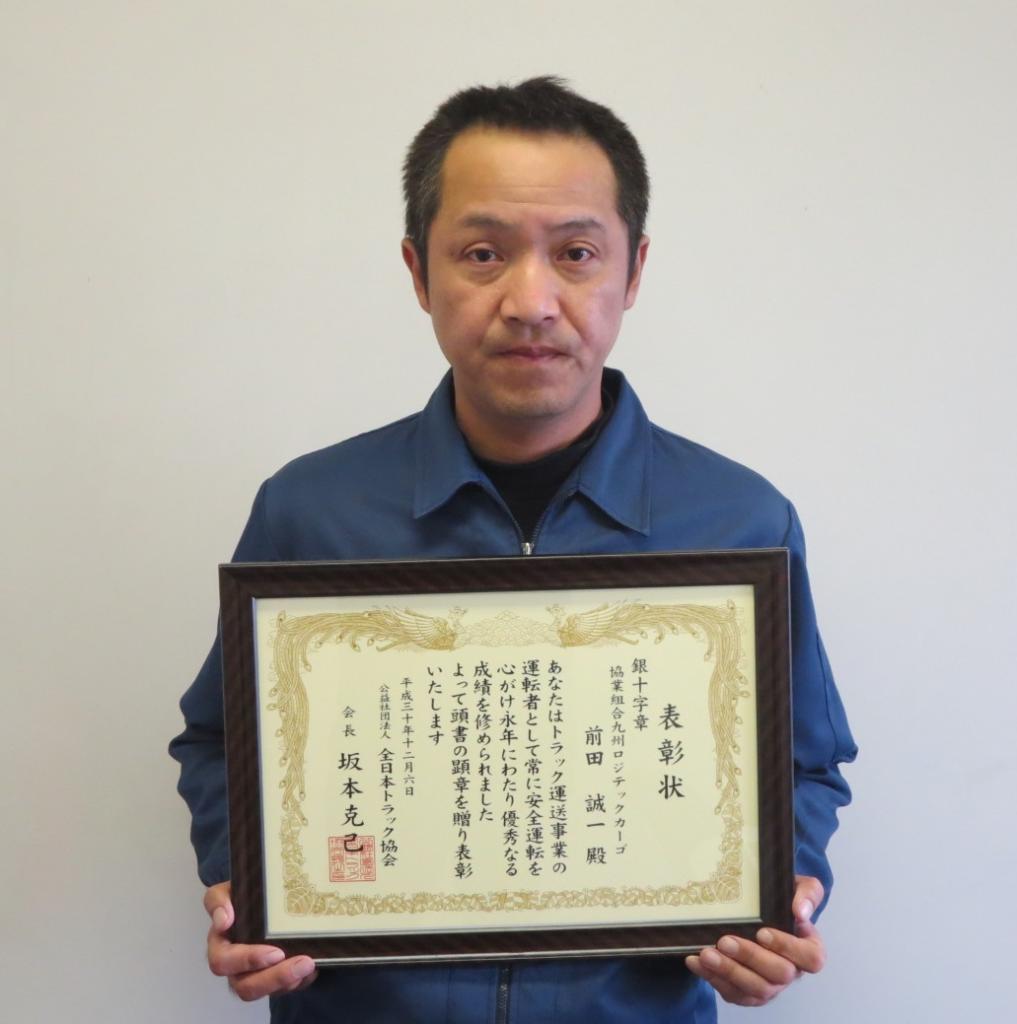 表彰状
銀十字章
協業組合九州ロジテックカーゴ
前田 誠一 殿
あなたはトラック運送事業の
運転者として常に安全運転を
心がけ永年にわたり優秀なる
成績を修められました
よって頭書の顕章を贈り表彰
いたします
平成三十年十二月六日
公益社団法人 全日本トラック協会
会長 坂本克己